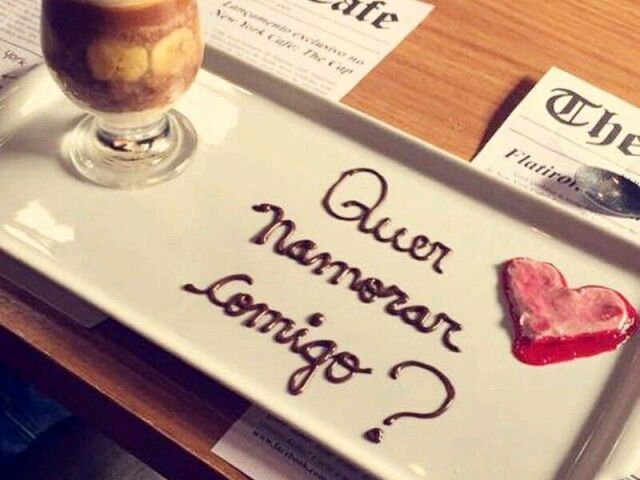 Cafe
Lançamento exclusivo no
New York Cafe: The Cap
York
The
Flatiro
Quer
Namorar
Comigo?
www.facebook.com